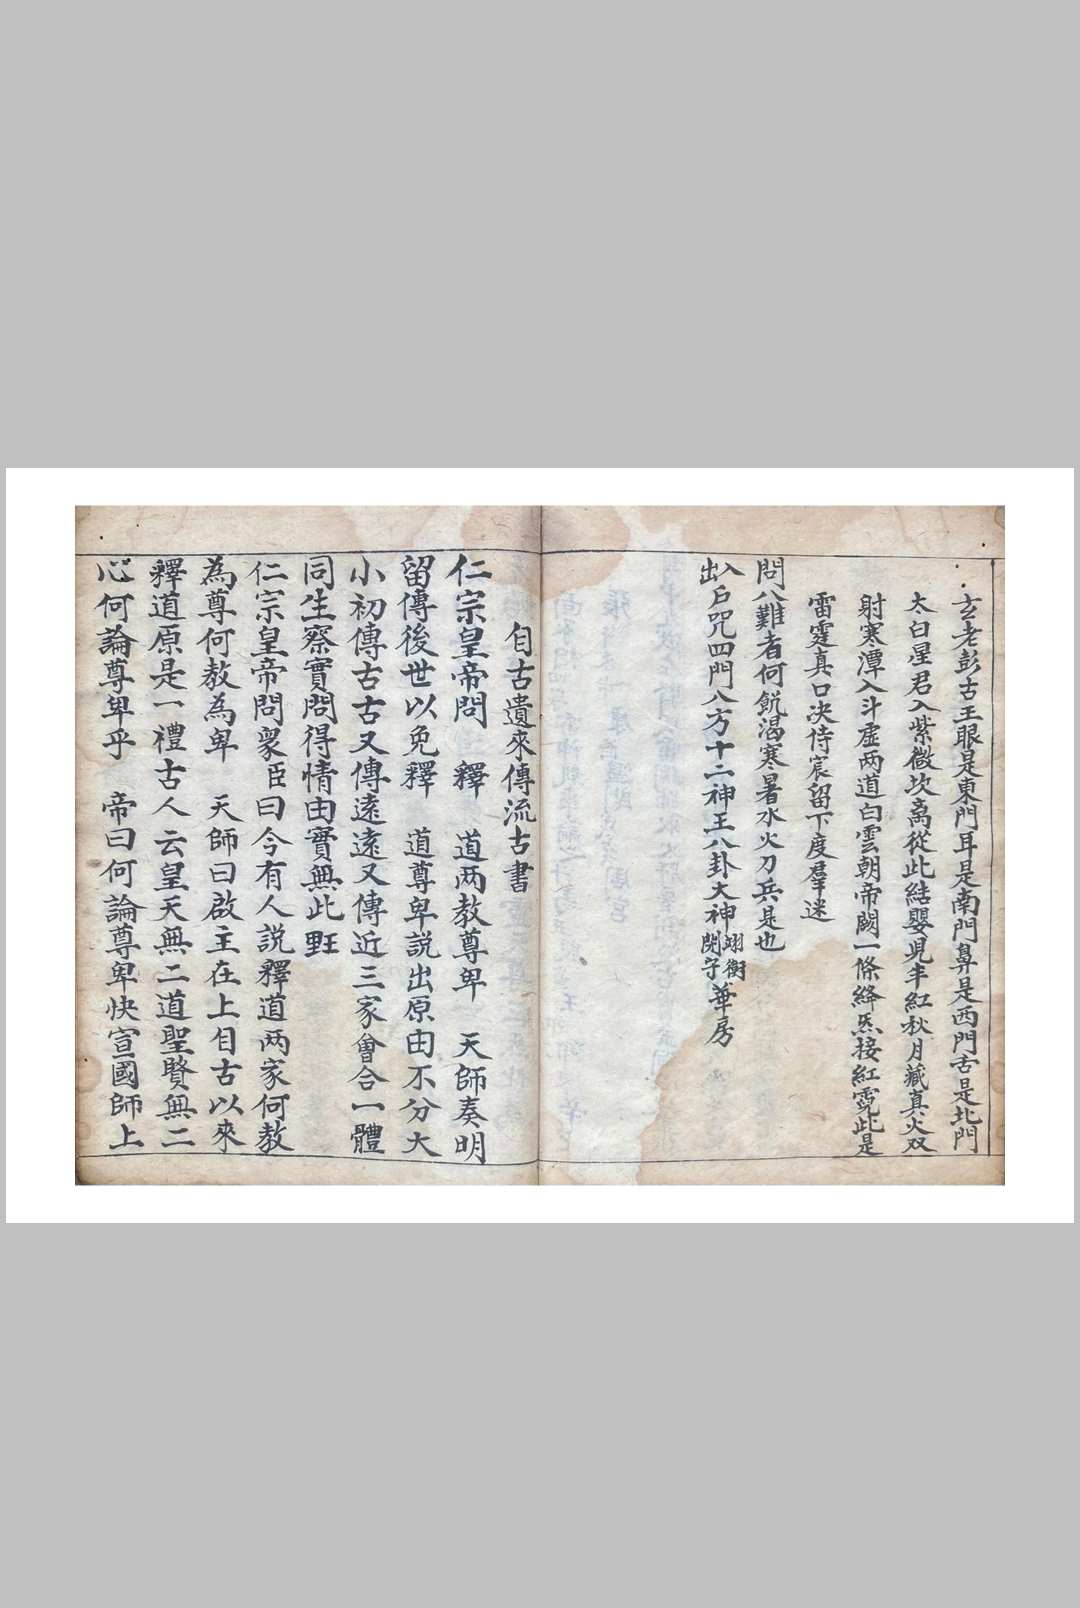 玄老彭古王眼是東門耳是南門鼻是西門舌是北門
太白星君入紫微坎离從此結嬰児半紅秋月藏真火双
射寒潭入斗虛两道白雲朝帝闕一條絳炁接紅霓此是
雷霆真口决侍宸留下度羣迷
問八難者何飢渴寒暑水火刀兵是也
出入戶咒四門八方十二神王八卦大神翊衛関守華房
自古遺來傳流古書
仁宗皇帝問 釋 道两教尊卑 天師奏明
留傳後世以免釋 道尊卑説出原由不分大
小初傳古古又傳遠遠又傳近三家會合一體
同生察實問得情由實無此
仁宗皇帝問衆臣曰今有人説釋道两家何教
為尊何教為卑 天師曰啟主在上自古以來
釋道原是一禮古人云皇天無二道聖賢無二
心何論尊卑乎 帝曰何論尊卑快宣國師上